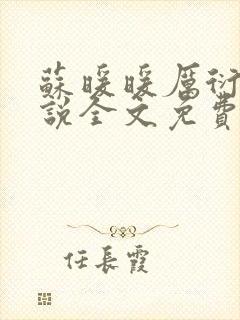 蘇暖暖厲衍
說全文免費
任長霞